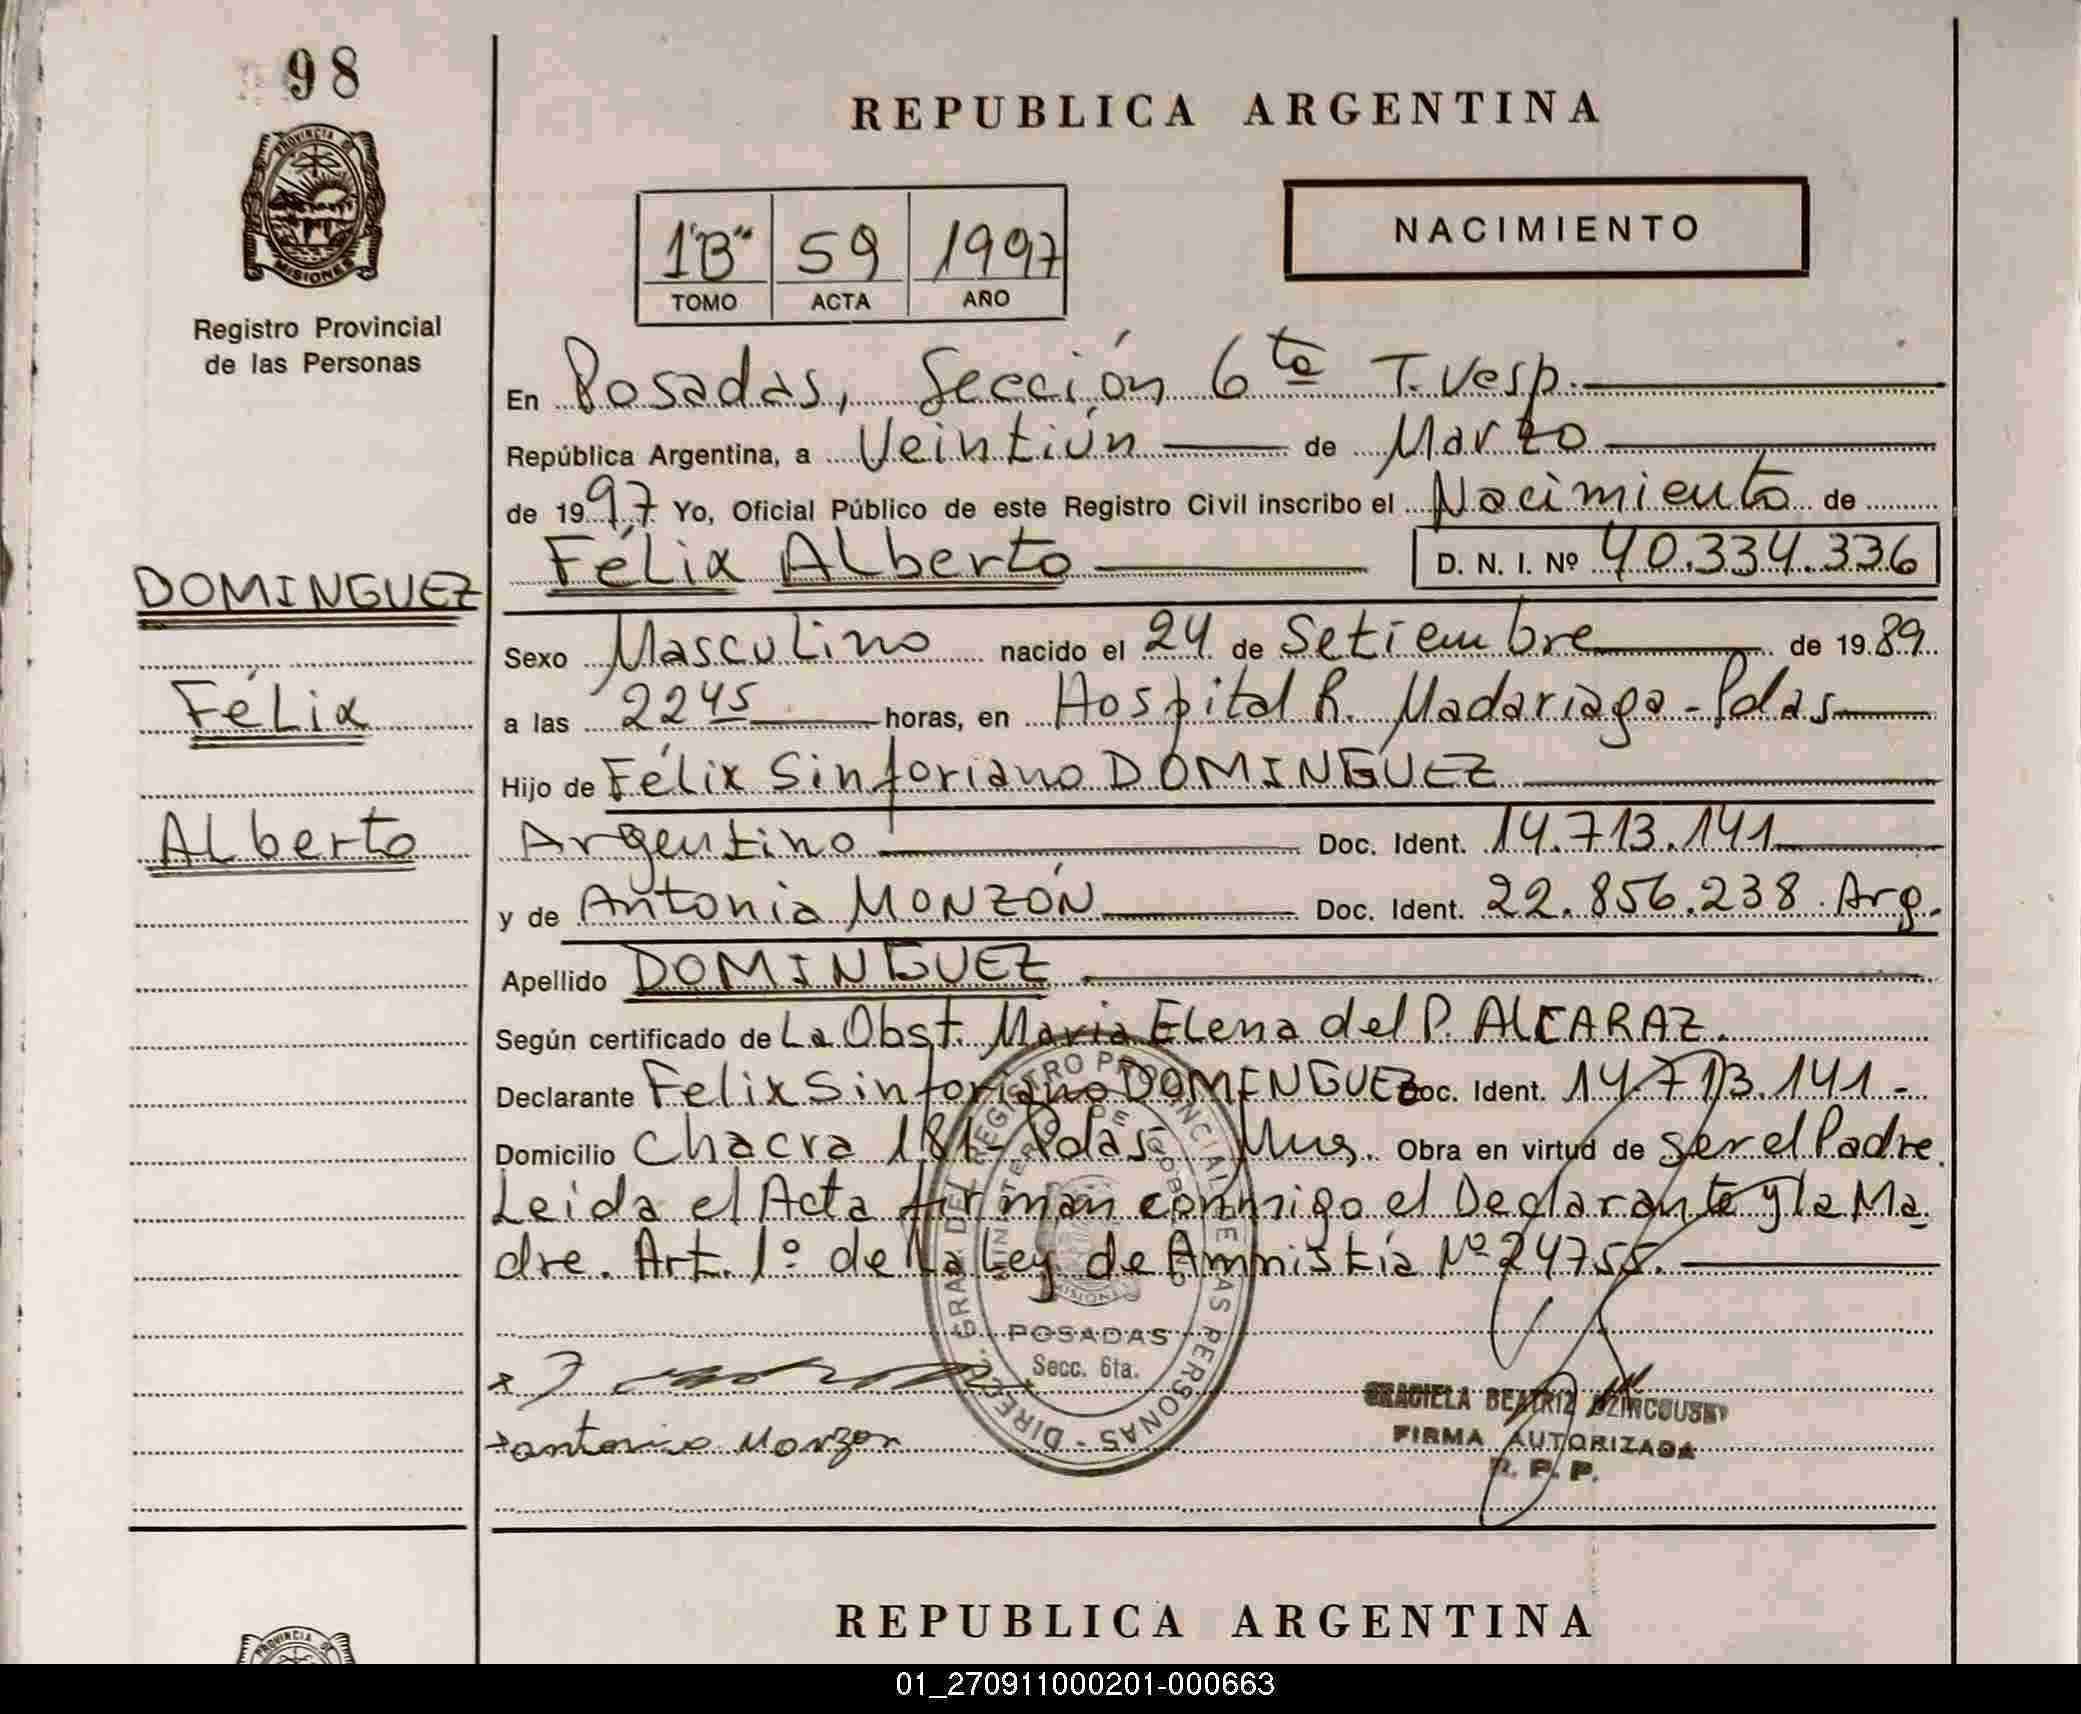 98
PROVINCIA DE
MISIONES
Registro Provincial
de las Personas
DOMINGUEZ
Félix
Alberto
REPUBLICA ARGENTINA
NACIMIENTO
1"B" 59 1997
TOMO ACTA AÑO
En Posadas, Sección 6ta T. Vesp.
República Argentina, a Veintiún de Marzo
de 1997 Yo, Oficial Público de este Registro Civil inscribo el Nacimiento de
Félix Alberto D. N. I. Nº 40.334.336
Sexo Masculino nacido el 24 de Setiembre de 1989
a las 2245 horas, en Hospital R. Madariaga - Pdas
Hijo de Félix Sinforiano DOMINGUEZ
Argentino Doc. Ident. 14.713.141
y de Antonia MONZÓN Doc. Ident. 22.856.238 Arg.
Apellido DOMINGUEZ
Según certificado de La Obst. Maria Elena del P. ALCARAZ.
Declarante Felix Sinforiano DOMINGUEZ Doc. Ident. 14.713.141.-
Domicilio Chacra 181- Pdas - Mns. Obra en virtud de ser el Padre.
Leida el Acta firman conmigo el Declarante y la Ma-
dre. Art. 1º de la Ley de Amnistía Nº 24755.
DIREC. GRAL DEL REGISTRO PROVINCIAL DE LAS PERSONAS
MINISTERIO DE GOBIERNO
MISIONES
POSADAS
Secc. 6ta.
x
x antonia Monzon
GRACIELA BEATRIZ
FIRMA AUTORIZADA
R. P. P.
REPUBLICA ARGENTINA
PROVINCIA DE
01_270911000201-000663